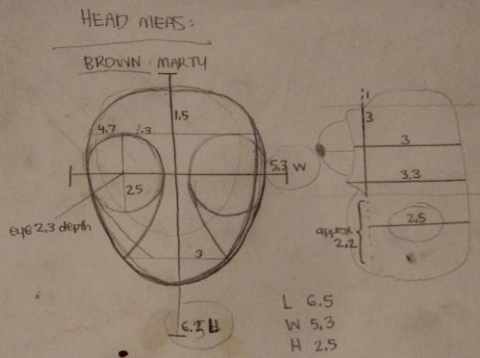 HEAD MEAS:
BROWN MARTY
1.5
4.7
1.3
5.3 W
2.5
eye 2.3 depth
3
L
1
3
3
3.3
2.5
approx
2.2
L 6.5
W 5.3
H 2.5